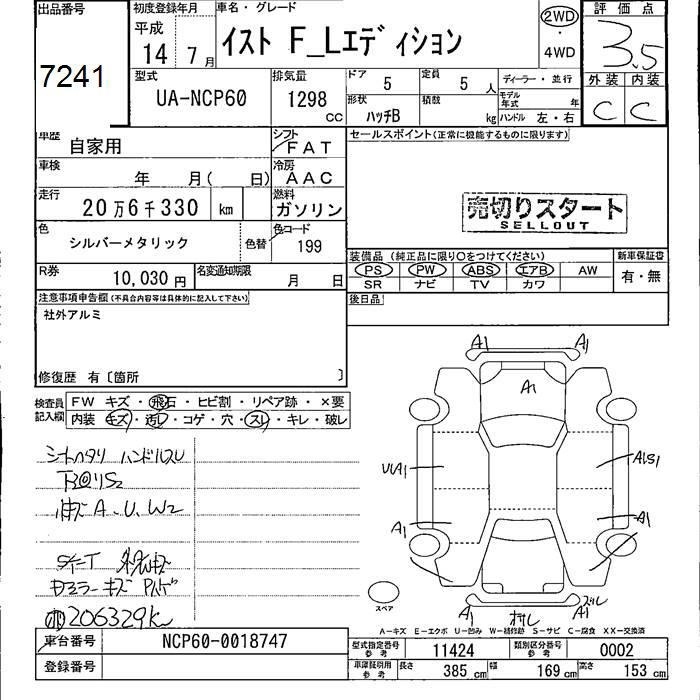 出品番号 初度登録年月 車名・グレード 評価点
7241 平成 14 7月 イスト F_Lエディション 2WD・4WD 3.5
型式 排気量 ドア 定員 ディーラー・並行 外装 内装
UA-NCP60 1298 CC 5 5人 モデル年式 年 C C
形状 積数 ハンドル 左・右
ハッチB kg
車歴 自家用 シフト FAT セールスポイント(正常に機能するものに限ります)
車検 年 月( 日) 冷房 AAC
走行 20万6千330 km 燃料 ガソリン
売切りスタート
SELLOUT
色 シルバーメタリック 色替 色コード 199
装備品(純正品に限り○をつけてください) 新車保証書
R券 10,030円 名変通知期限 月 日
PS PW ABS エアB AW 有・無
SR ナビ TV カワ
注意事項申告欄(不具合内容等は具体的に記入して下さい) 後日品
社外アルミ
修復歴 有〔箇所 〕
検査員記入欄 FW キズ・飛石・ヒビ割・リペア跡・×要
内装 キズ・汚レ・コゲ・穴・スレ・キレ・破レ
シートヘタリ ハンドルスレ
A・U、W2
206329K
A1 A1
A1
UA1 A1S1
A1 A1
A1 A1
スペア
A-キズ E-エクボ U-凹み W-補修跡 S-サビ C-腐食 XX-交換済
車台番号 NCP60-0018747
登録番号
型式指定番号 参考 11424 類別区分番号 参考 0002
車庫証明用 参考 長さ 385cm 幅 169cm 高さ 153cm